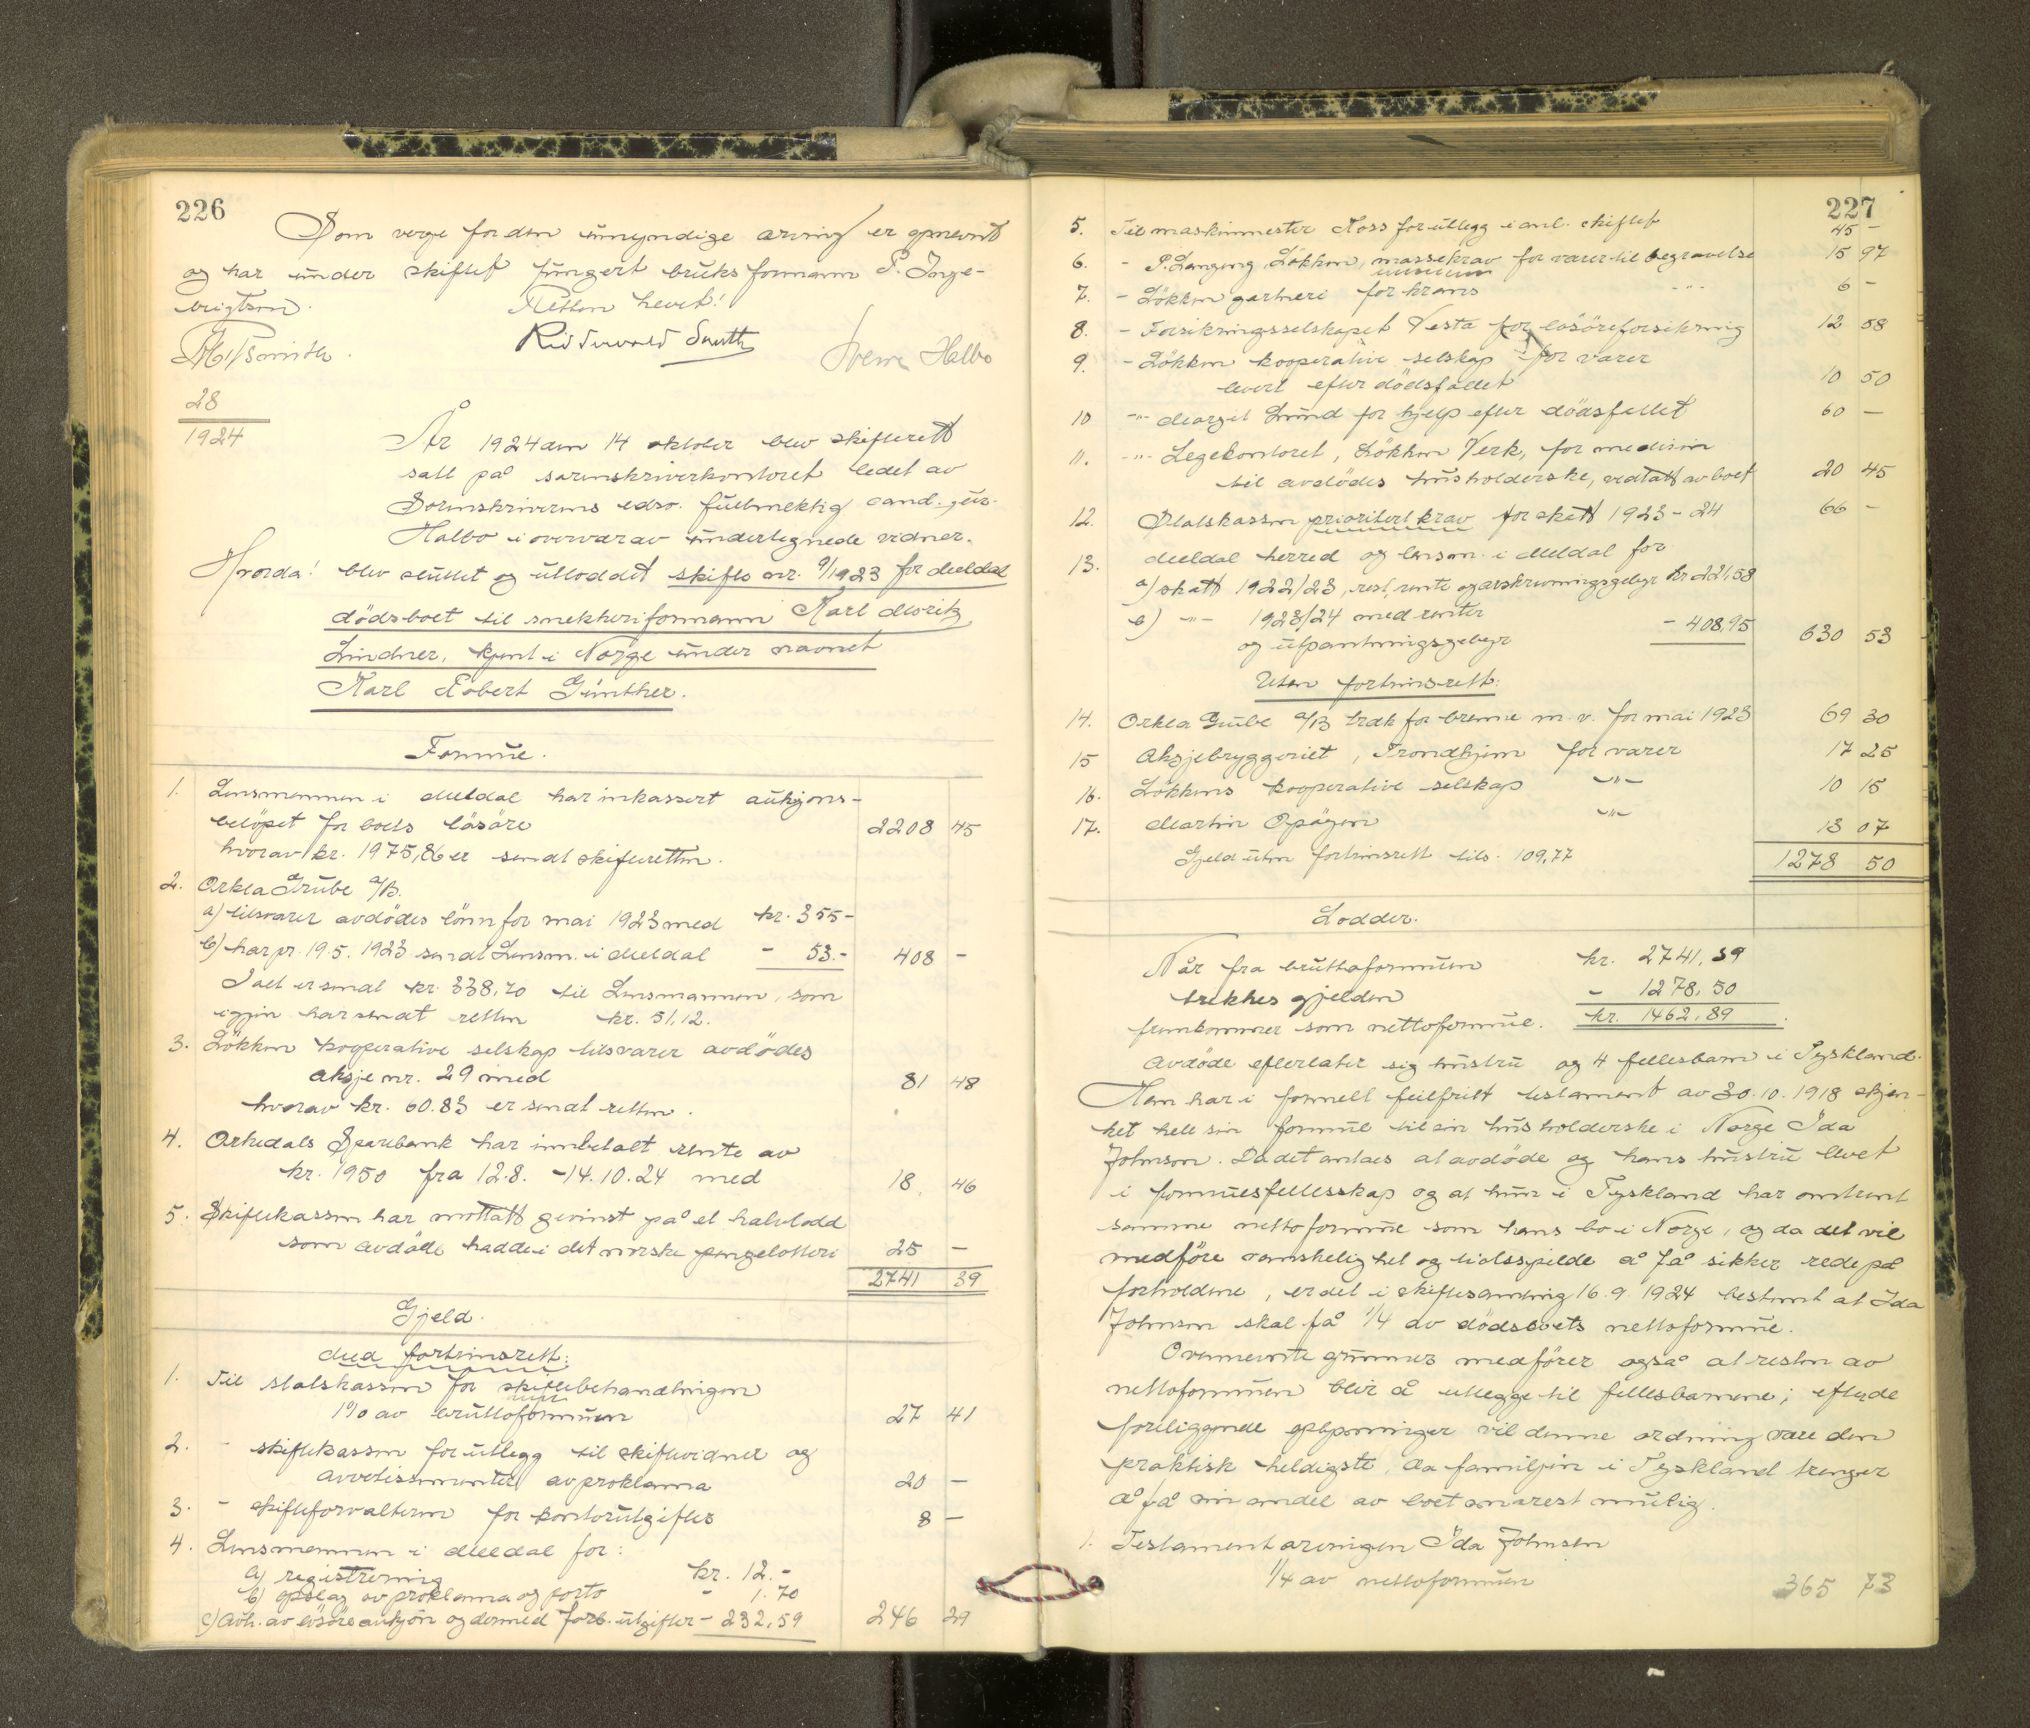 226
Som verge for den umyndige arving er opnevnt
og har under skiftet fungert bruksformann P. Inge-
brigtsen.
Retten hevet!
Smith.
Ridderwold Smith
Sverre Halbo
28
1924
År 1924 den 14 oktober blev skifterett
satt på sorenskriverkontoret ledet av
Sorenskriverens edsv. fullmektig cand. jur.
Halbo i overvær av undertegnede vidner.
Hvorda! blev sluttet og utloddet skifte nr. 9/1923 for Meldal
dödsboet til snekkeriformann Karl Moritz
Lindner, kjent i Norge under navnet
Karl Robert Günther.
Formue.
1. Lensmannen i Meldal har inkassert auksjons-
belöpet for boets lösöre 2208 45
hvorav kr. 1975,86 er sendt skifteretten.
2. Orkla Grube A/B.
a) tilsvarer avdödes lönn for mai 1923 med kr. 355-
b) har pr. 19.5.1923 sendt Lensm. i Meldal - 53.- 408 -
I alt er sendt kr. 338,20 til Lensmannen, som
igjen har sendt retten kr. 51,12.
3. Lökken kooperative selskap tilsvarer avdödes
aksje nr. 29 med 81 48
hvorav kr. 60.83 er sendt retten.
4. Orkedals Sparebank har innbetalt rente av
kr. 1950 fra 12.8. - 14.10.24 med 18 46
5. Skiftekassen har mottatt gevinst på et halvlodd
som avdöde hadde i det norske pengelotteri 25 -
2741 39
Gjeld.
Med fortrinsrett:
1. Til statskassen for skiftebehandlingen
1% av bruttoformuen 27 41
2. - skiftekassen for utlegg til skiftevidner og
avertissementer av proklama 20 -
3. - skifteforvalteren for kontorutgifter 8 -
4. Lensmannen i Meldal for:
a) registrering kr. 12.-
b) opslag av proklama og porto - 1.70
c) avh. av lösöreauksjon og dermed forb. utgifter - 232,59 246 29
227
5. Til maskinmester Moss for utlegg i anl. skiftet 45 -
6. - P. Langeng, Lökken, massekrav for varer til begravelse 15 97
7. - Lökken gartneri for krans -"- 6 -
8. - Forsikringsselskapet Vesta for lösöreforsikring 12 08
9. - Lökken kooperative selskap for varer
levert efter dödsfallet 10 50
10 -"- Marget Lund for hjelp efter dödsfallet 60 -
11. -"- Legekontoret, Lökken Verk, for medisin
til avdödes husholderske, vedtatt av boet 20 45
12. Statskassen prioritert krav for skatt 1923-24 66 -
13. Meldal herred og lensm. i Meldal for
a) skatt 1922/23, rest, rente og avskrivningsgebyr kr 221,58
b) -"- 1923/24 med renter
og utpantningsgebyr - 408,95 630 53
Uten fortrinsrett:
14. Orkla Grube A/B trekk for brenne m. v. for mai 1923 69 30
15 Aksjebryggeriet, Trondhjem for varer 17 25
16. Lökkens kooperative selskap -"- 10 15
17. Martin Opöyen -"- 13 07
Gjeld uten fortrinsrett tils. 109,77
1278 50
Lodder.
Når fra bruttoformuen kr. 2741,39
trekkes gjelden - 1278,50
fremkommer som nettoformue. kr. 1462,89.
Avdöde efterlater sig hustru og 4 fellesbarn i Tyskland.
Han har i formelt feilfritt testament av 30.10.1918 skjen-
ket hele sin formue til sin husholderske i Norge Ida
Johnsen. Da det antaes at avdöde og hans hustru levet
i formuesfellesskap og at hun i Tyskland har omtrent
samme nettoformue som hans bo i Norge, og da det vil
medföre vanskelighet og tidsspilde å få sikker rede på
forholdene, er det i skiftesamling 16.9.1924 bestemt at Ida
Johnsen skal få 1/4 av dödsboets nettoformue.
Ovennevnte grunner medförer også at resten av
nettoformuen blir å utlegge til fellesbarnene; efter de
foreliggende oplysninger vil denne ordning være den
praktisk heldigste, da familjen i Tyskland trenger
å få sin andel av boet snarest mulig.
1. Testamentarvingen Ida Johnsen
1/4 av nettoformuen 365 73